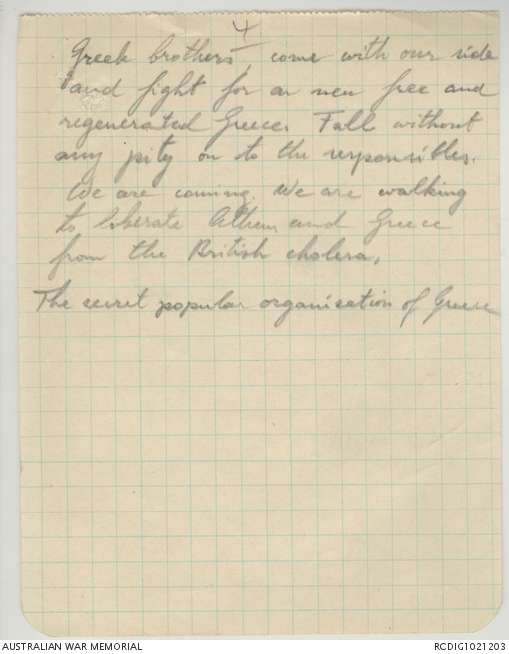 4
Greek brothers, come with our side
and fight for an new free and
regenerated Greece. Fall without
any pity on to the responsibles.
We are coming. We are walking
to liberate Athens and Greece
from the British cholera.
The secret popular organisation of Greece
AUSTRALIAN WAR MEMORIAL
RCDIG1021203